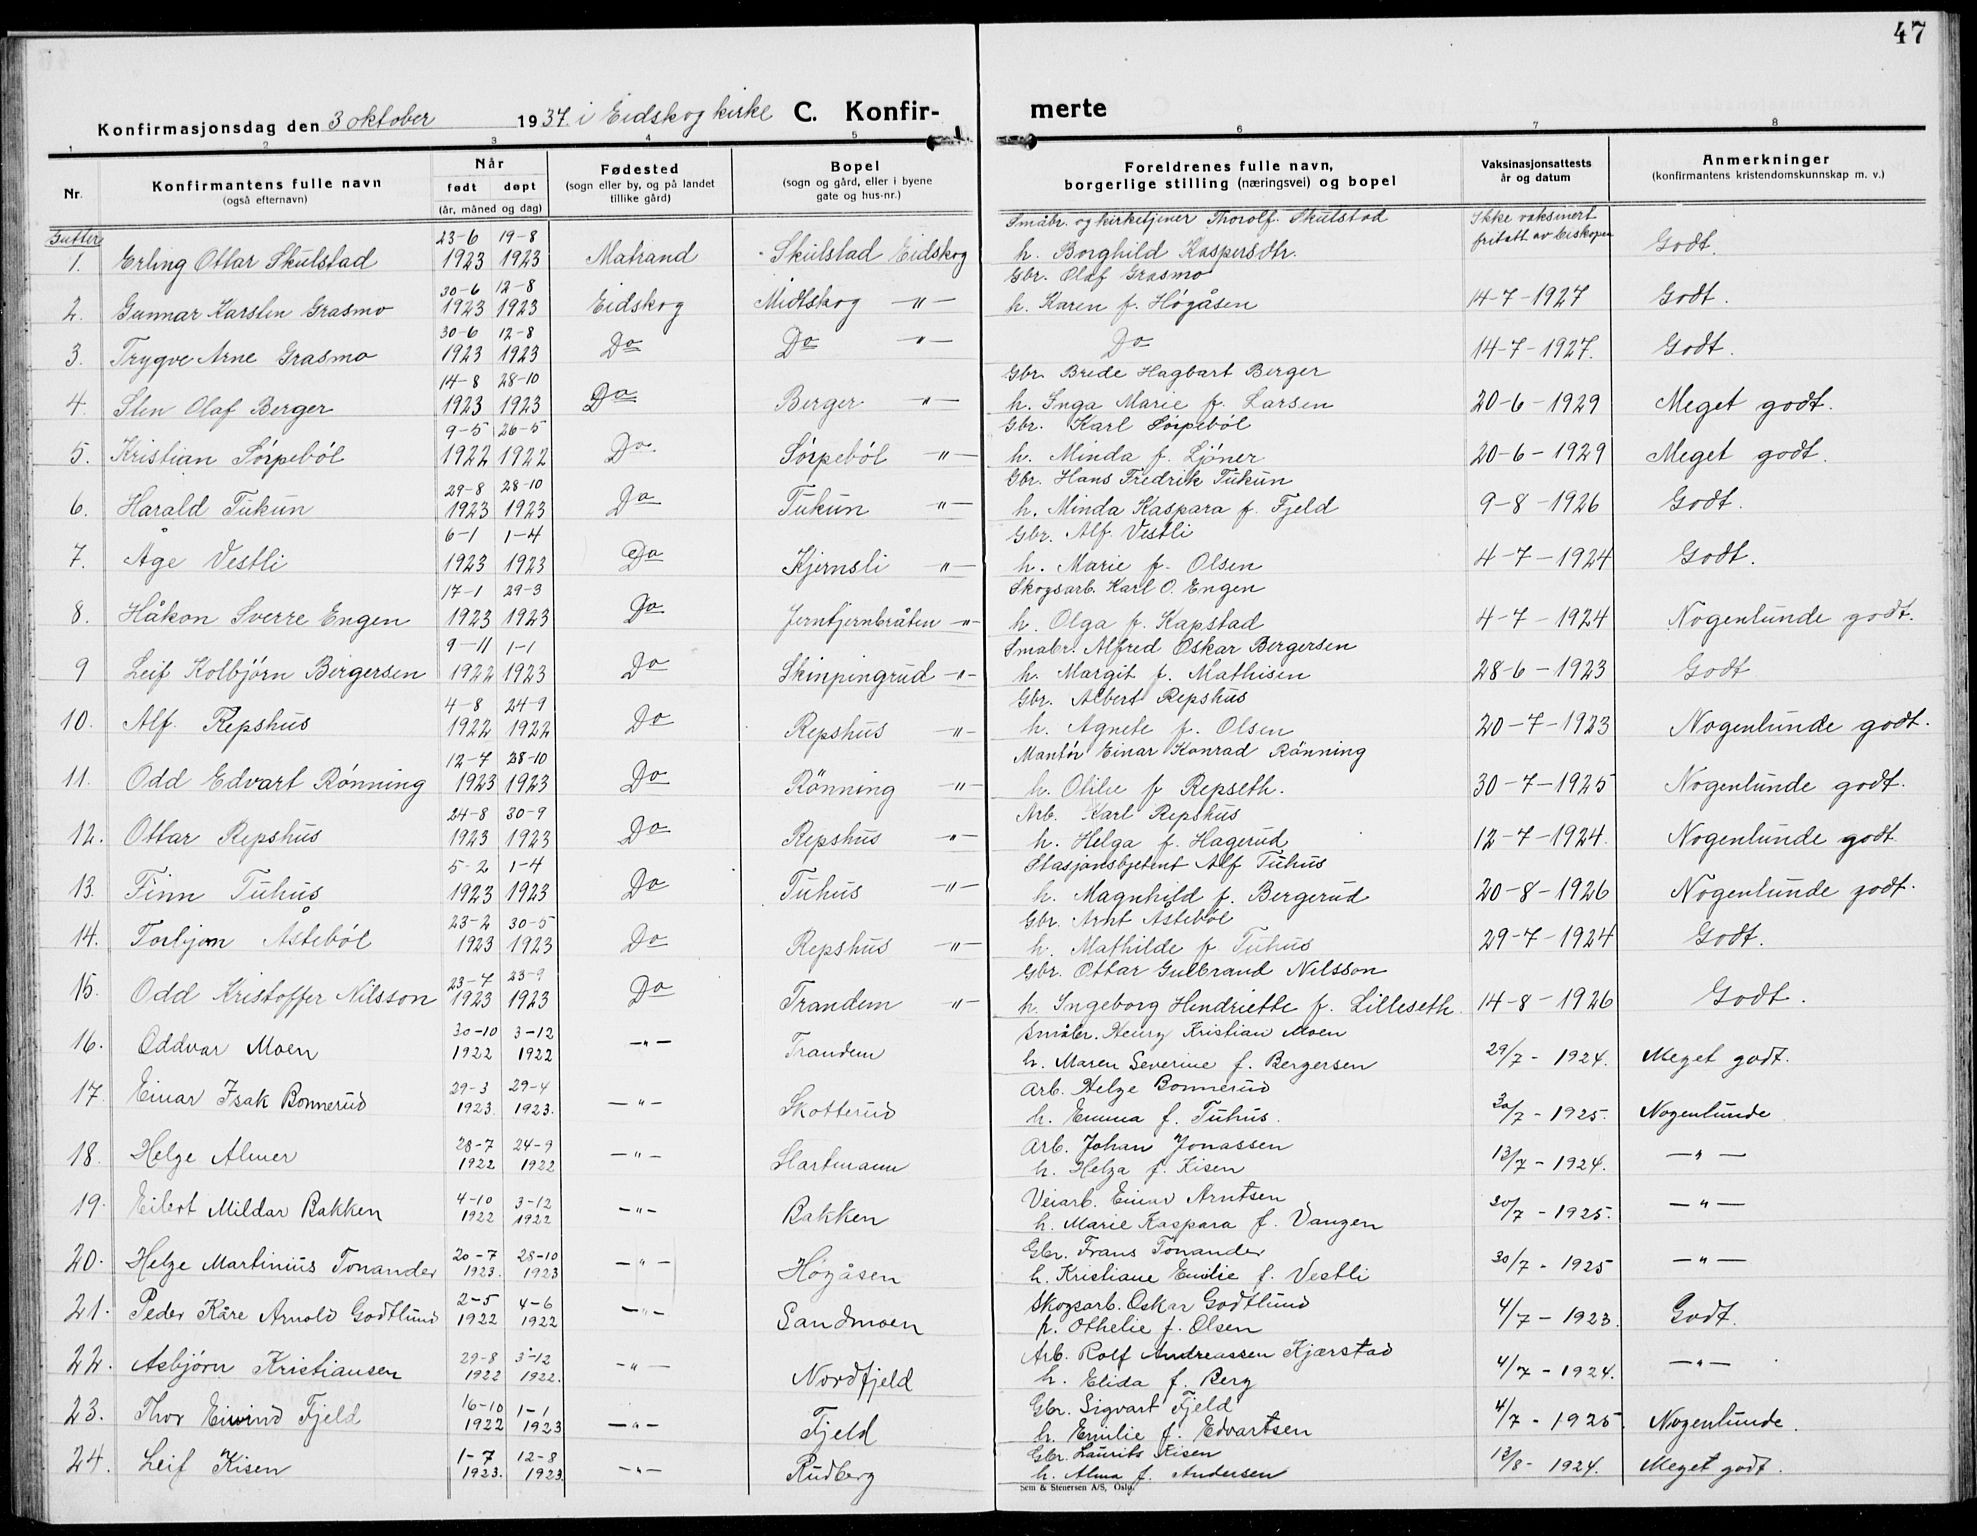 47
Konfirmasjonsdag den 3 oktober 1937 i Eidskog kirke C. Konfir- merte
1 2 3 4 5 6 7 8
Nr. Konfirmantens fulle navn (også efternavn) Når født døpt (år, måned og dag) Fødested (sogn eller by, og på landet tillike gård) Bopel (sogn og gård, eller i byene gate og hus-nr.) Foreldrenes fulle navn, borgerlige stilling (næringsvei) og bopel Vaksinasjonsattests år og datum Anmerkninger (konfirmantens kristendomskunnskap m. v.)
Gutter 23-6 19-8 Småbr. og kirketjener Thorolf Skulstad Ikke vaksinert fritatt av biskopen
1. Erling Ottar Skulstad 1923 1923 Matrand Skulstad Eidskog h. Borghild Kaspersdtr. Godt.
30-6 12-8 Gbr. Olaf Grasmo
2. Gunnar Karsten Grasmo 1923 1923 Eidskog Midtskog -"- h. Karen f. Högåsen 14-7-1927 Godt.
30-6 12-8
3. Trygve Arne Grasmo 1923 1923 Do Do -"- Do 14-7-1927. Godt.
14-8 28-10 Gbr. Brede Hagbart Berger
4. Sten Olaf Berger 1923 1923 Do Berger -"- h. Inga Marie f. Larsen 20-6-1929 Meget godt.
9-5 26-5 Gbr. Karl Sörpeböl
5. Kristian Sörpeböl 1922 1922 Do Sörpeböl -"- h. Minda f. Ljöner 20-6-1929 Meget godt.
29-8 28-10 Gbr. Hans Fredrik Tukun
6. Harald Tukun 1923 1923 Do Tukun -"- h. Minda Kaspara f. Fjeld 9-8-1926 Godt.
6-1 1-4 Gbr. Alf Vestli
7. Åge Vestli 1923 1923 Do Kjernsli -"- h. Marie f. Olsen 4-7-1924 Godt.
17-1 29-3 Skogsarb. Karl O. Engen
8. Håkon Sverre Engen 1923 1923 Do Jerntjernbråten -"- h. Olga f. Kapstad 4-7-1924 Nogenlunde godt.
9-11 1-1 Småbr. Alfred Oskar Bergersen
9 Leif Kolbjörn Bergersen 1922 1923 Do Skinpingrud -"- h. Margit f. Mathisen 28-6-1923 Godt
4-8 24-9 Gbr. Albert Repshus
10. Alf. Repshus 1922 1922 Do Repshus -"- h. Agnete f. Olsen 20-7-1923 Nogenlunde godt.
12-7 28-10 Mantör Einar Konrad Rönning
11. Odd Edvart Rönning 1923 1923 Do Rönning -"- h. Otilie f Repseth. 30-7-1925 Nogenlunde godt.
24-8 30-9 Arb. Karl Repshus
12. Ottar Repshus 1923 1923 Do Repshus -"- h. Helga f. Hagerud 12-7-1924. Nogenlunde godt.
5-2 1-4 Stasjonsbetjent Alf Tuhus
13. Finn Tuhus 1923 1923 Do Tuhus -"- h. Magnhild f. Bergerud 20-8-1926 Nogenlunde godt.
23-2 30-5 Gbr. Arnt Åsteböl
14. Torbjørn Åsteböl 1923 1923 Do Repshus -"- h. Mathilde f. Tuhus 29-7-1924 Godt.
23-7 23-9 Gbr. Ottar Gulbrand Nilsson
15. Odd Kristoffer Nilsson 1923 1923 Do Trandem -"- h. Ingeborg Hendriette f. Lilleseth. 14-8-1926 Godt.
30-10 3-12 Småbr. Henry Kristian Moen
16. Oddvar Moen 1922 1922 -"- Trandem h. Maren Severine f. Bergersen 29/7 - 1924. Meget godt.
29-3 29-4 Arb. Helge Bonnerud
17. Einar Isak Bonnerud 1923. 1923. -"- Skotterud h. Emma f. Tuhus. 30/7 - 1925. Nogenlunde
28-7 24-9 Arb. Johan Jonassen
18. Helge Almer 1922 1922 -"- Hartmann h. Helga f. Kisen 13/7 - 1924. -"-
4-10 3-12 Veiarb. Einar Arntsen
19. Eilert Mildar Bakken 1922 1922 -"- Bakken h. Marie Kaspara f. Vangen 30/7 - 1925. -"-
20-7 28-10 Gbr. Frans Tonander
20. Helge Martinius Tonander 1923. 1923 -"- Högåsen h. Kristiane Emilie f. Vestli 30/7 - 1925 -"-
2-5 4-6 Skogsarb. Oskar Godtlund
21. Peder Kåre Arnold Godtlund 1922 1922 -"- Sandmoen h. Othelie f. Olsen 4/7 - 1923. Godt.
29-8 3-12 Arb. Rolf Andreassen Kjærstad
22. Asbjørn Kristiansen 1922 1922. -"- Nordfjeld h. Elida f. Berg 4/7 - 1924. -"-
16-10 1-1 Gbr. Sigvart Fjeld
23. Thor Eiwind Fjeld 1922 1923 -"- Fjeld h. Emilie f. Edvartsen 4/7 - 1925. Nogenlunde.
1-7 12-8 Gbr. Laurits Kisen
24. Leif Kisen 1923. 1923. -"- Rudberg h. Alma f. Andersen 13/8 - 1924. Meget godt.
Sem & Stenersen A/S, Oslo.